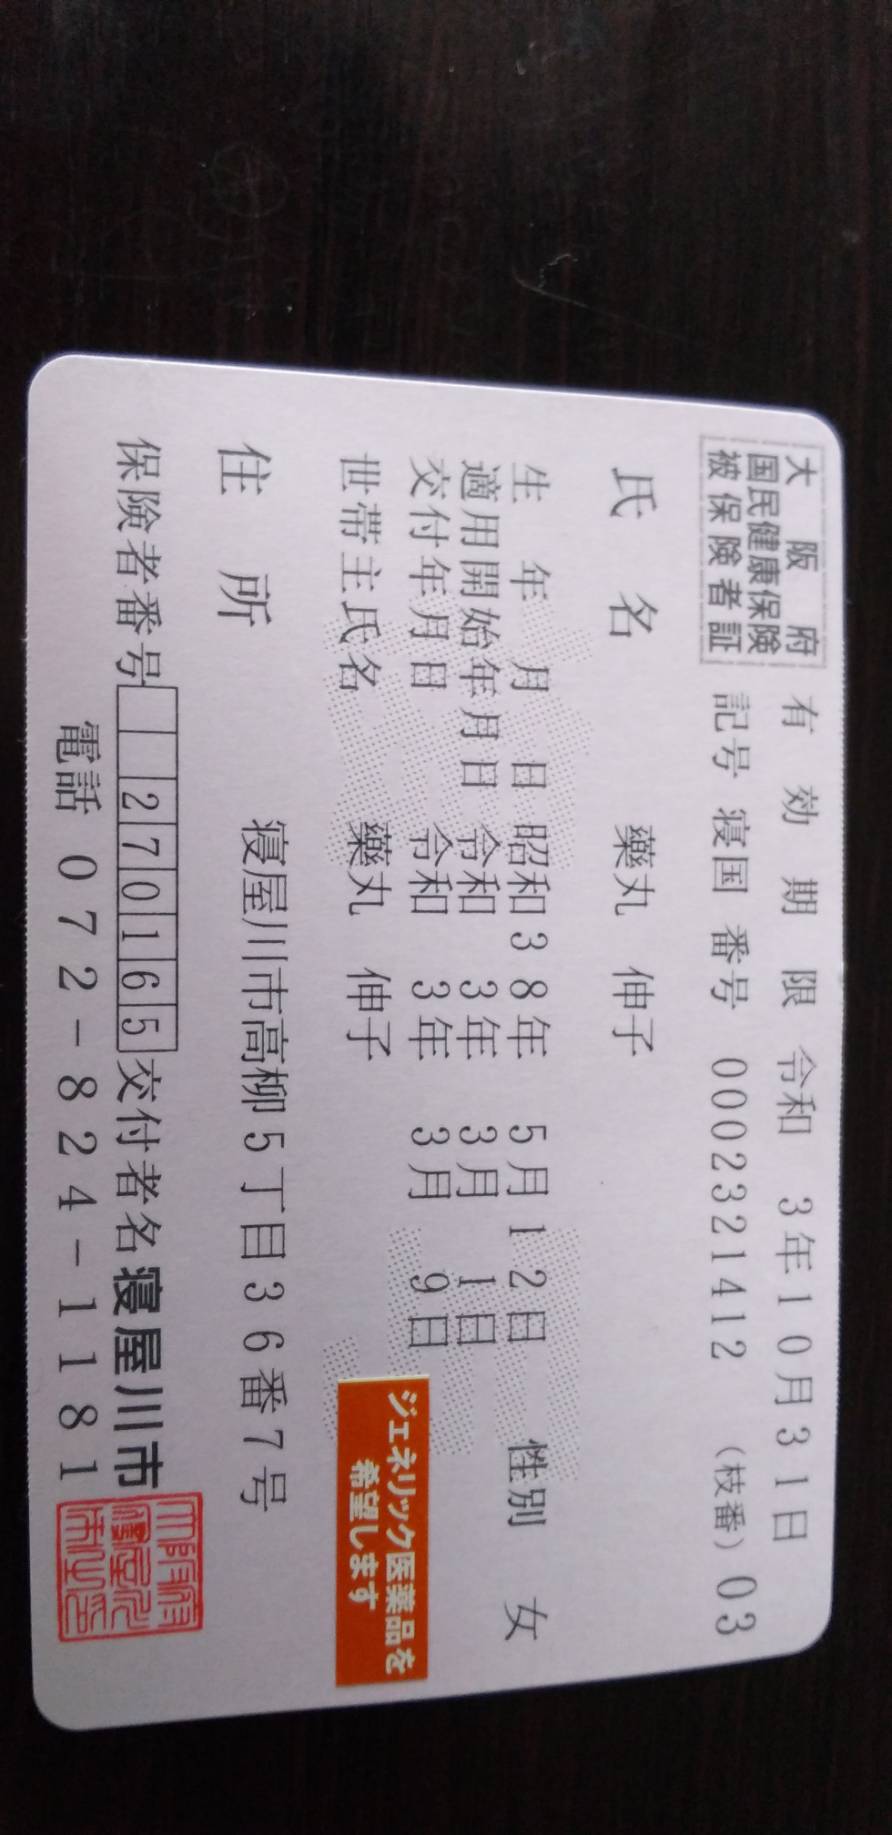 大阪府
国民健康保険
被保険者証
有効期限 令和 3年10月31日
記号 寝国 番号 0002321412 (枝番)03
氏名 藥丸 伸子
生年月日 昭和38年 5月12日 性別 女
適用開始年月日 令和 3年 3月 1日
交付年月日 令和 3年 3月 9日
世帯主氏名 藥丸 伸子
ジェネリック医薬品を
希望します
住所 寝屋川市高柳5丁目36番7号
保険者番号 270165 交付者名 寝屋川市
電話 072-824-1181